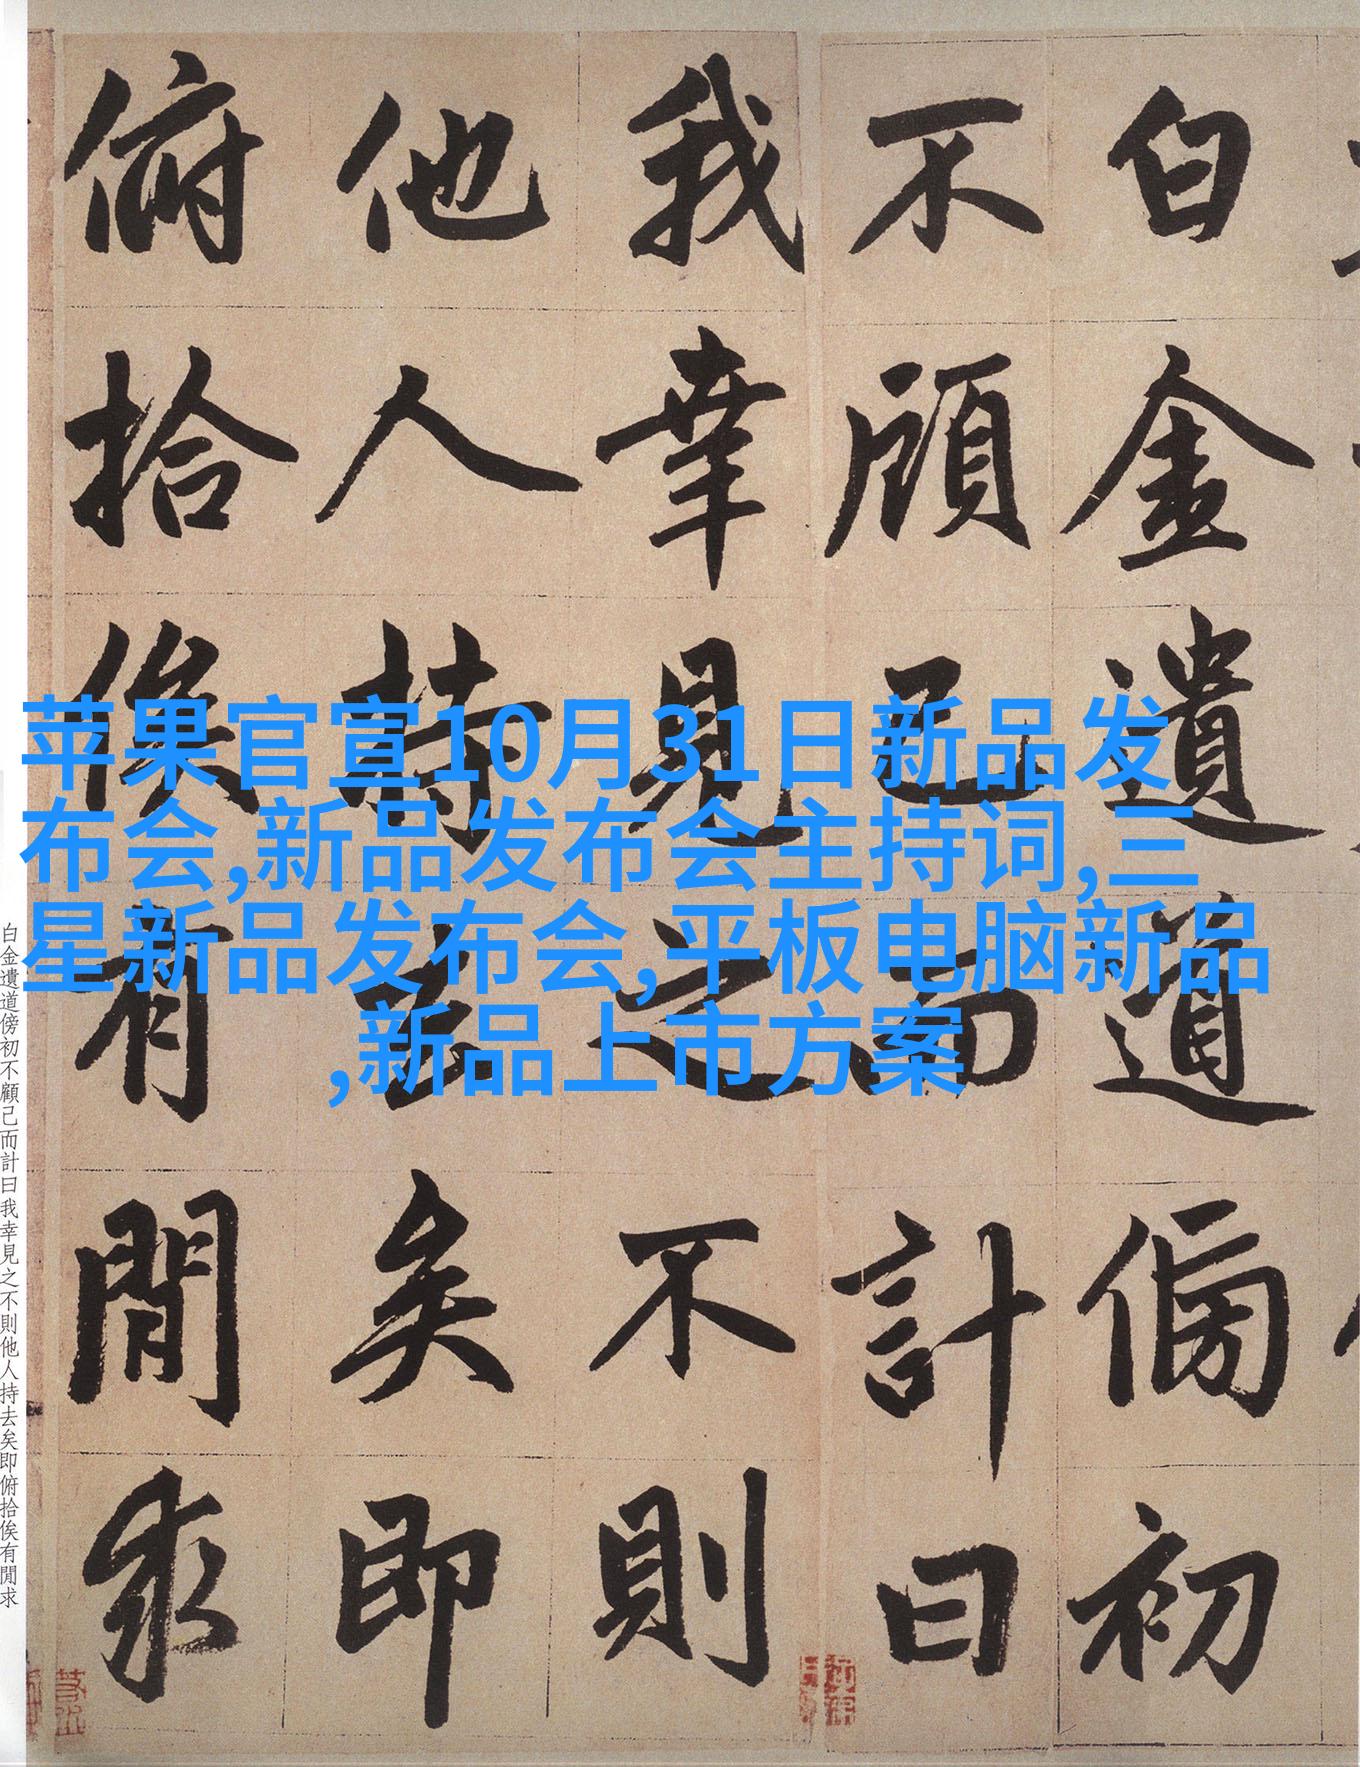 白金遺道傍初
不顧己而計曰
我幸見之不則
他人持去矣即
俯拾俟有閒求
苹果官宣10月31日新品发
布会,新品发布会主持词,三
星新品发布会,平板电脑新品
,新品上市方案
白金遺道傍初不顧己而計曰我幸見之不則他人持去矣即俯拾俟有閒求